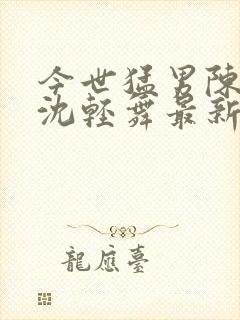 今世猛男陳
沈輕舞最新
龍應臺